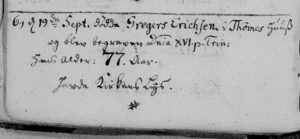 69 d 19de Sept. dödde Gregers Erichsen, i Thomes Huuß
og blev begraven Dnca XVI. p. Trin:
hans Alder: 77 Aar.
Jorde Kirkens